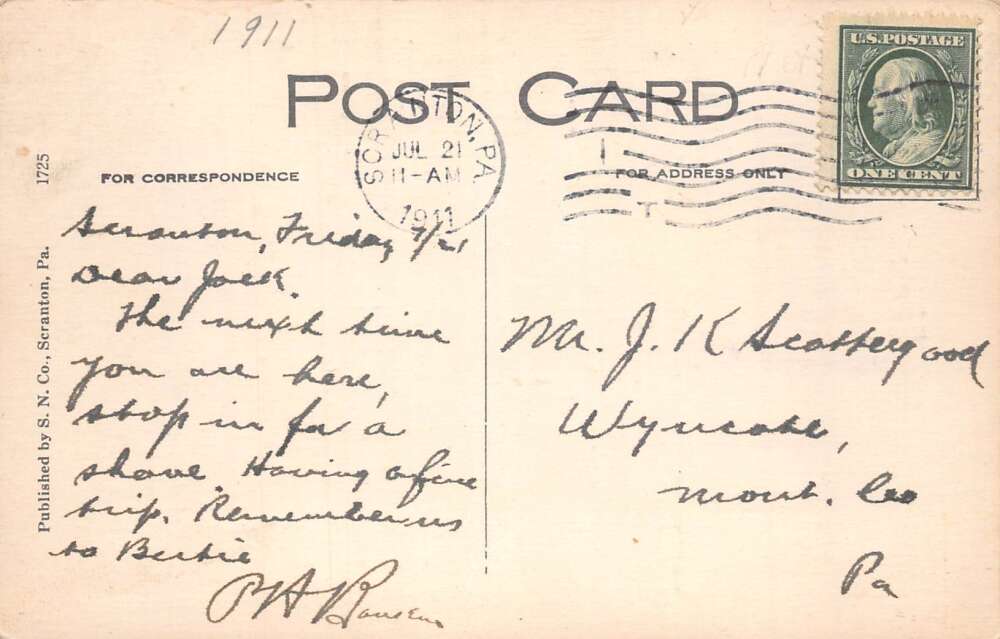 1911
POST CARD
U.S. POSTAGE
ONE CENT
SCRANTON, PA.
JUL 21
11-AM
1911
FOR CORRESPONDENCE
FOR ADDRESS ONLY
1725
Published by S. N. Co., Scranton, Pa.
Scranton, Friday 7/21
Dear Jack.
The next time
you are here,
stop in for a
shave. Having a fine
trip. Remember us
to Bertie
P H
Mr. J. K Scattergood
Wyncote,
Mont. Co
Pa